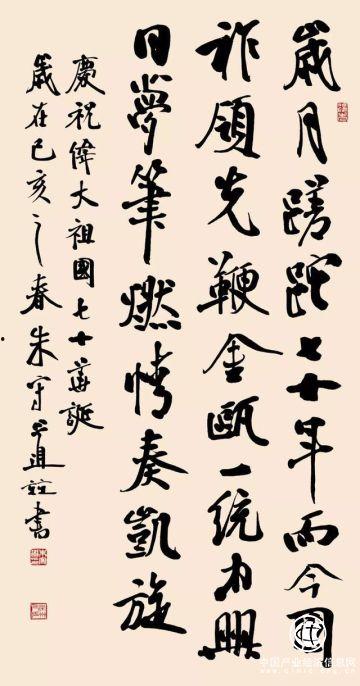 歲月蹉跎七十年而今國
祚領先鞭金甌一統興
日夢筆燃情奏凱旋
慶祝偉大祖國七十華誕
歲在己亥之春朱守道並書
中国产业经济信息网